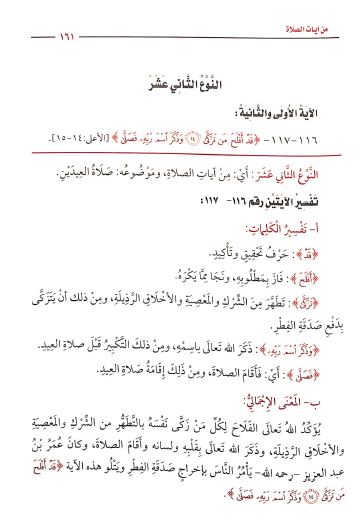 من آيات الصلاة
١٦١
النَّوْعُ الثَّانِي عَشَرَ
الآيَةُ الأُولَى وَالثَّانِيَةُ:
١١٦-١١٧- ﴿قَدْ أَفْلَحَ مَن تَزَكَّىٰ ١٤ وَذَكَرَ ٱسْمَ رَبِّهِۦ فَصَلَّىٰ﴾ [الأعلى: ١٤-١٥].
النَّوْعُ الثَّانِي عَشَرَ: أَيْ: مِنْ آيَاتِ الصلاةِ، وَمَوْضُوعُهُ: صَلَاةُ العِيدَيْنِ.
تَفْسِيرُ الآيَتَيْنِ رقم ١١٦- ١١٧:
أ- تَفْسِيرُ الْكَلِمَاتِ:
﴿قَدْ﴾: حَرْفُ تَحْقِيقٍ وَتَأْكِيدٍ.
﴿أَفْلَحَ﴾: فَازَ بِمَطْلُوبِهِ، وَنَجَا مِمَّا يَكْرَهُ.
﴿تَزَكَّىٰ﴾: تَطَهَّرَ مِنَ الشِّرْكِ وَالْمَعْصِيَةِ وَالأَخْلَاقِ الرَّذِيلَةِ، وَمِنْ ذلك أنْ يَتَزَكَّى
بِدَفْعِ صَدَقَةِ الفِطْرِ.
﴿وَذَكَرَ ٱسْمَ رَبِّهِۦ﴾: ذَكَرَ الله تَعَالَى بِاسْمِهِ، وَمِنْ ذلك التَّكْبِيرُ قَبْلَ صلاةِ العِيدِ.
﴿فَصَلَّىٰ﴾: أَيْ: فَأَقَامَ الصَّلاةَ، وَمِنْ ذَلِكَ إِقَامَةُ صَلاةِ العِيدِ.
ب- الْمَعْنَى الإِجْمَالِيُّ:
يُؤَكِّدُ اللهُ تَعَالَى الفَلَاحَ لِكُلِّ مَنْ زَكَّى نَفْسَهُ بِالتَّطَهُّرِ من الشِّرْكِ وَالْمَعْصِيَةِ
وَالأَخْلَاقِ الرَّذِيلَةِ، وَذَكَرَ الله تَعَالَى بِقَلْبِهِ ولسانه وأَقَامَ الصلاةَ، وكانَ عُمَرُ بْنُ
عبد العزيز -رحمه الله- يَأْمُرُ النَّاسَ بإخراجِ صَدَقَةِ الفِطْرِ وَيَتْلُو هذه الآيةَ ﴿قَدْ أَفْلَحَ
مَن تَزَكَّىٰ ١٤ وَذَكَرَ ٱسْمَ رَبِّهِۦ فَصَلَّىٰ﴾.